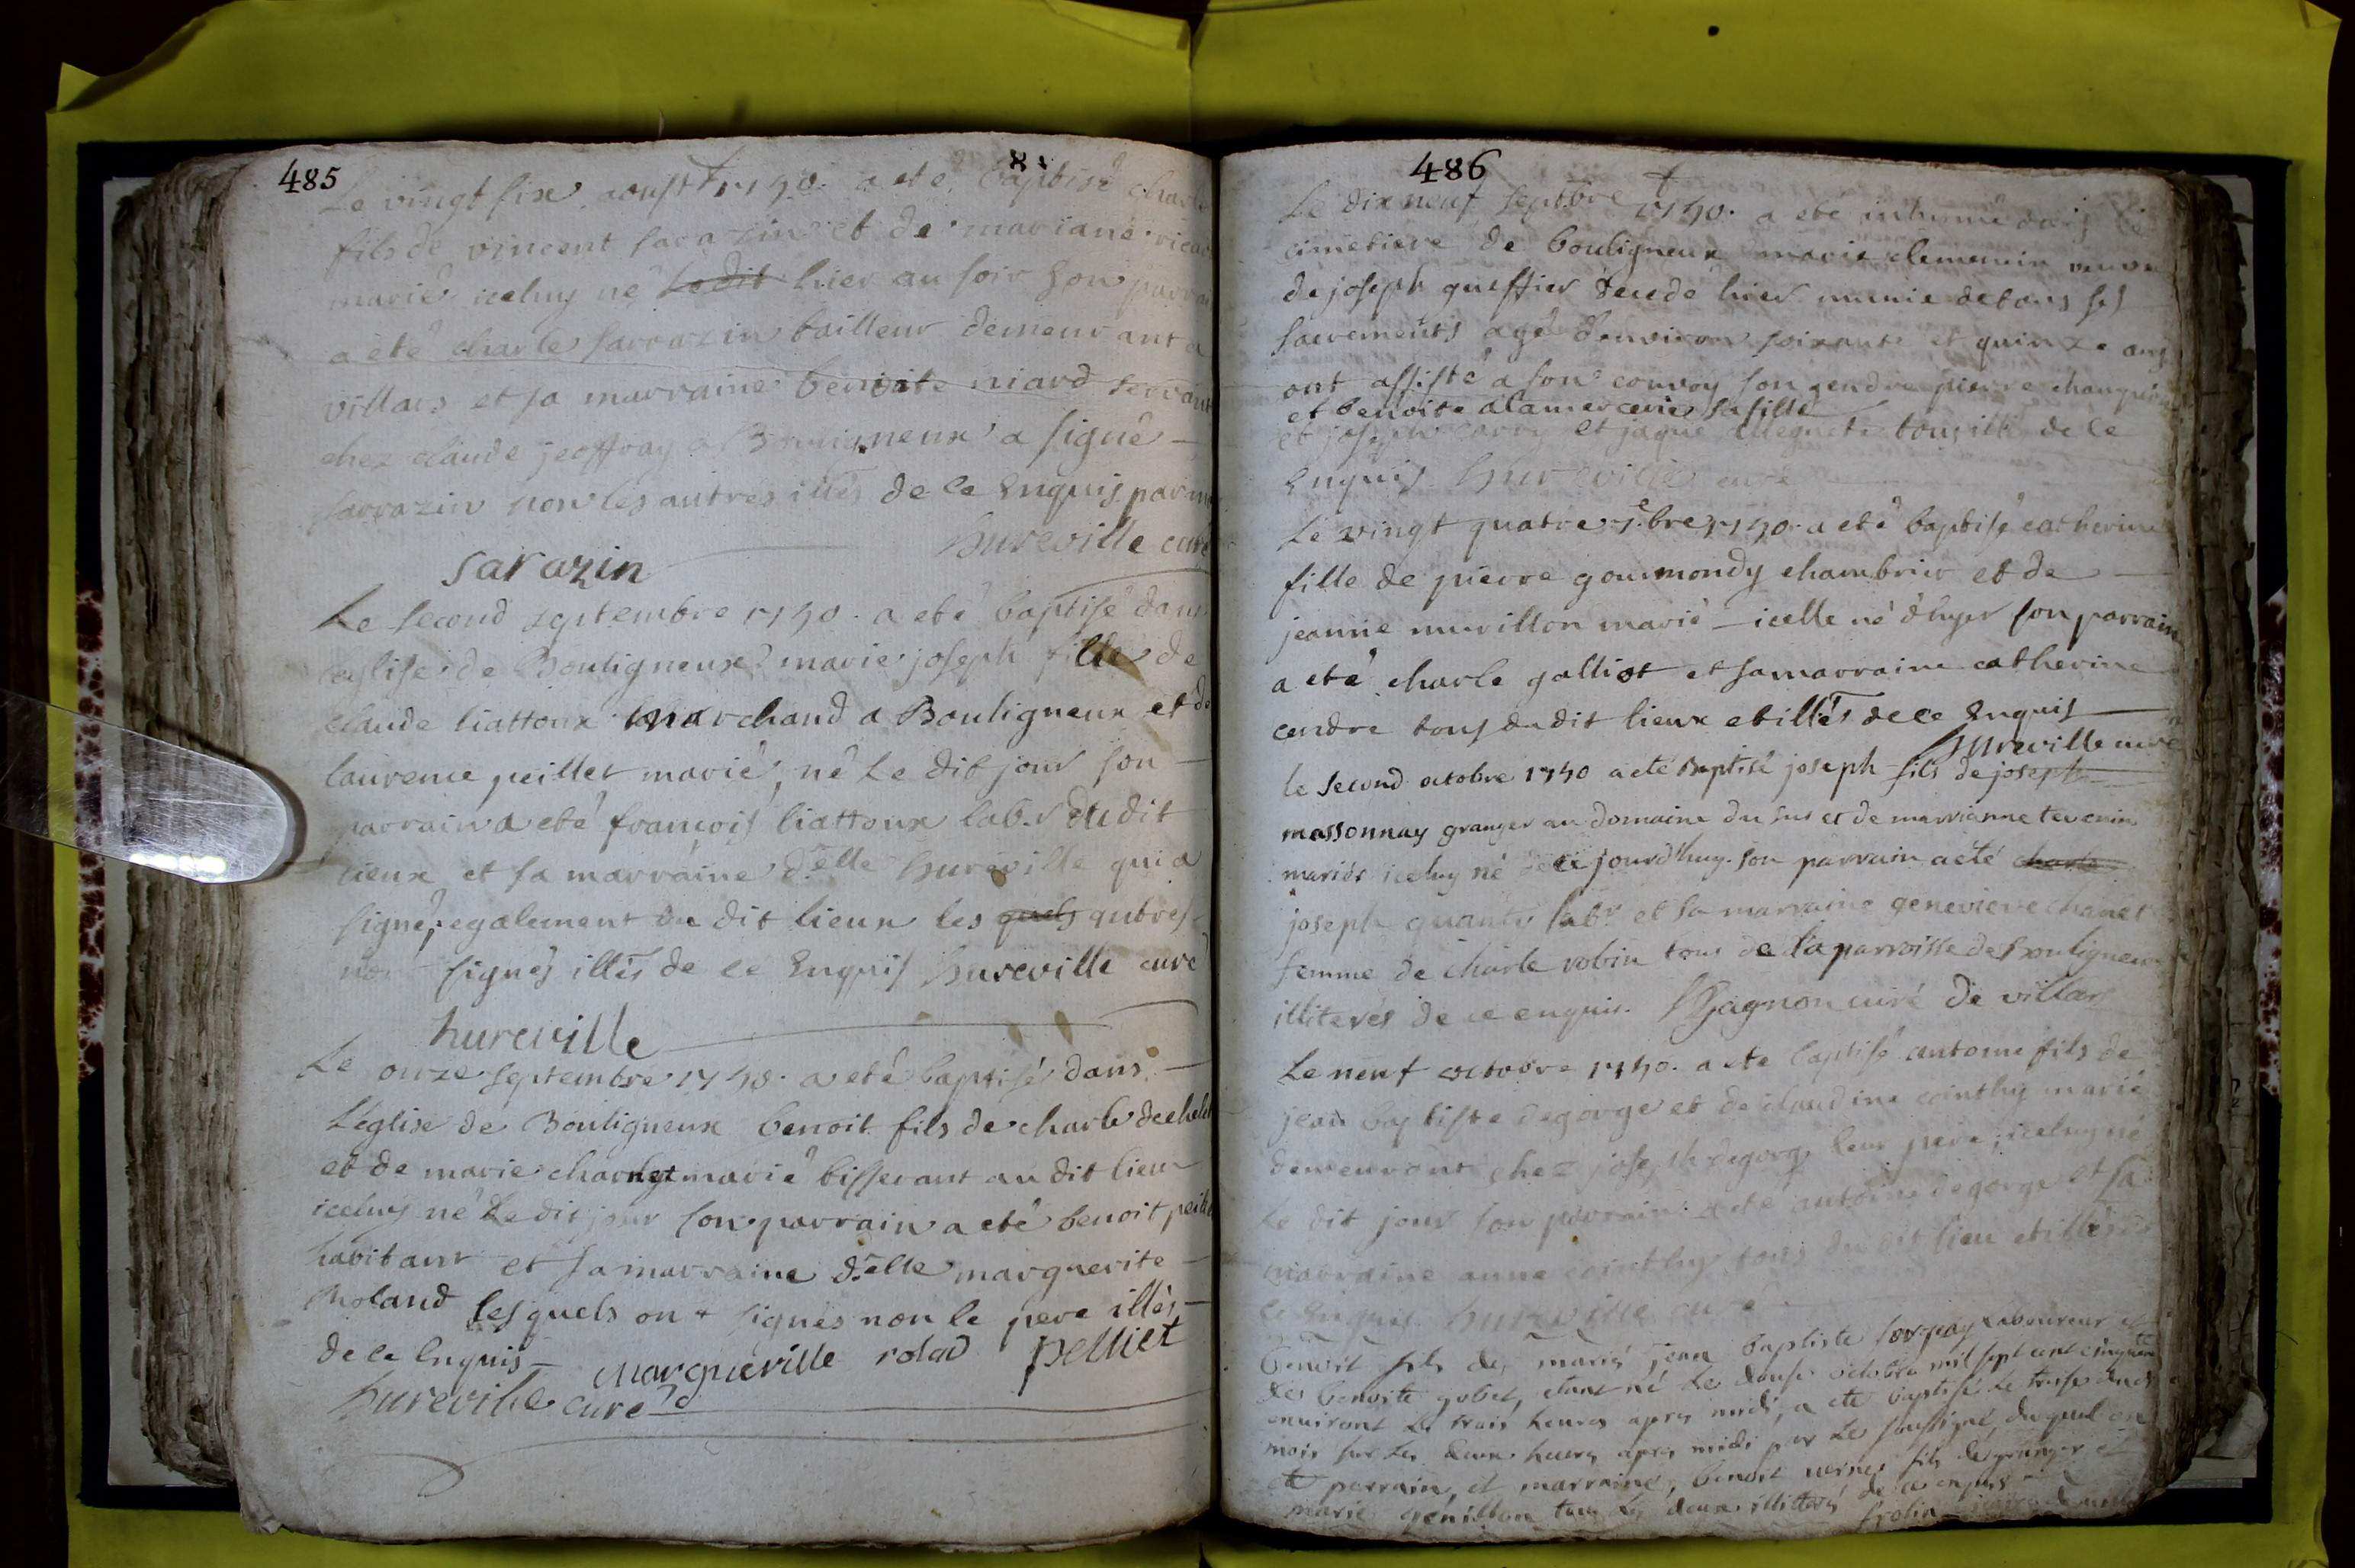 485
Le vingt six aoust 1750. a eté baptisé charle
fils de vincent sarazin et de mariane
marié, iceluy né le dit hier au soir son parrain
a été charle sarrazin bailleur demeurant a
villars et sa marraine benoite niard servante
chez claude jeoffray a Bouligneux a signé
sarrazin non les autres illés de ce Enquis par moy
hureville curé
sarazin
Le second septembre 1750. a eté baptisé dans
l'eglise de Bouligneux marie joseph fille de
claude liattoux marchand a Bouligneux et de
laurence peillet marié, né Le dit jour son
parrain a eté françois liattoux lab.r du dit
lieux et sa marraine d.elle hureville qui a
signé, egalement du dit lieux les quels autres
non signés illés de ce Enquis hureville curé
hureville
Le onze septembre 1750. a eté baptisé dans
L'eglise de Bouligneux benoit fils de charle
et de marie charlet marié bisserant au dit lieu
iceluy né Le dit jour son parrain a eté benoit
habitant et sa marraine d.elle marguerite
Roland lesquels ont signés non le pere illés
de ce Enquis marguerille rolad pelliet
hureville curé
486
Le dix neuf septbre 1750. a eté inhumé dans le
cimetiere de bouligneux marie clemencin veuve
de joseph guiffier decedé hier munie de tous ses
sacrements agé d'environ soixante et quinze ans
ont assisté a son convoy son gendre pierre
et benoite alamercerie sa fille
et joseph carry et jaque tous illé de ce
Enquis. hureville curé
Le vingt quatre 7.bre 1750. a eté baptisé catherine
fille de pierre gourmondy chambrier et de
jeanne murillon marié icelle né d'hyer son parrain
a eté charle galliot et sa marraine catherine
cendre tous du dit lieux et illés de ce Enquis
hureville curé
le second octobre 1750 a eté Baptisé joseph fils de joseph
massonnay granger au domaine du sus et de marrianne tevenin
mariés iceluy né de ce jourd'huy. son parrain a eté charle
joseph quante labr et sa marraine genevieve chanet
femme de charle robin tous de la parroisse de Bouligneux
illiterés de ce enquis. Gagnon curé de villars
Le neuf octobre 1750. a eté baptisé antoine fils de
jean baptiste degorge et de claudine cointhy marié
demeurant chez joseph degorge leur pere, iceluy né
Le dit jour son parrain a eté antoine degorge et sa
marraine anne cointhy tous du dit lieu et illés de
ce Enquis. hureville curé
benoit fils de, marié jean baptiste laboureur et
de benoite gobet, etant né le douse octobre mil sept cent cinquante
environt les trois heures apres midi, a eté baptisé le treise
mois sur les deux heures apres midi par le soussigné, duquel on
eté parrain, et marraine, benoit fils de granger et
marie genillon tous les deux illitérés de ce enquis